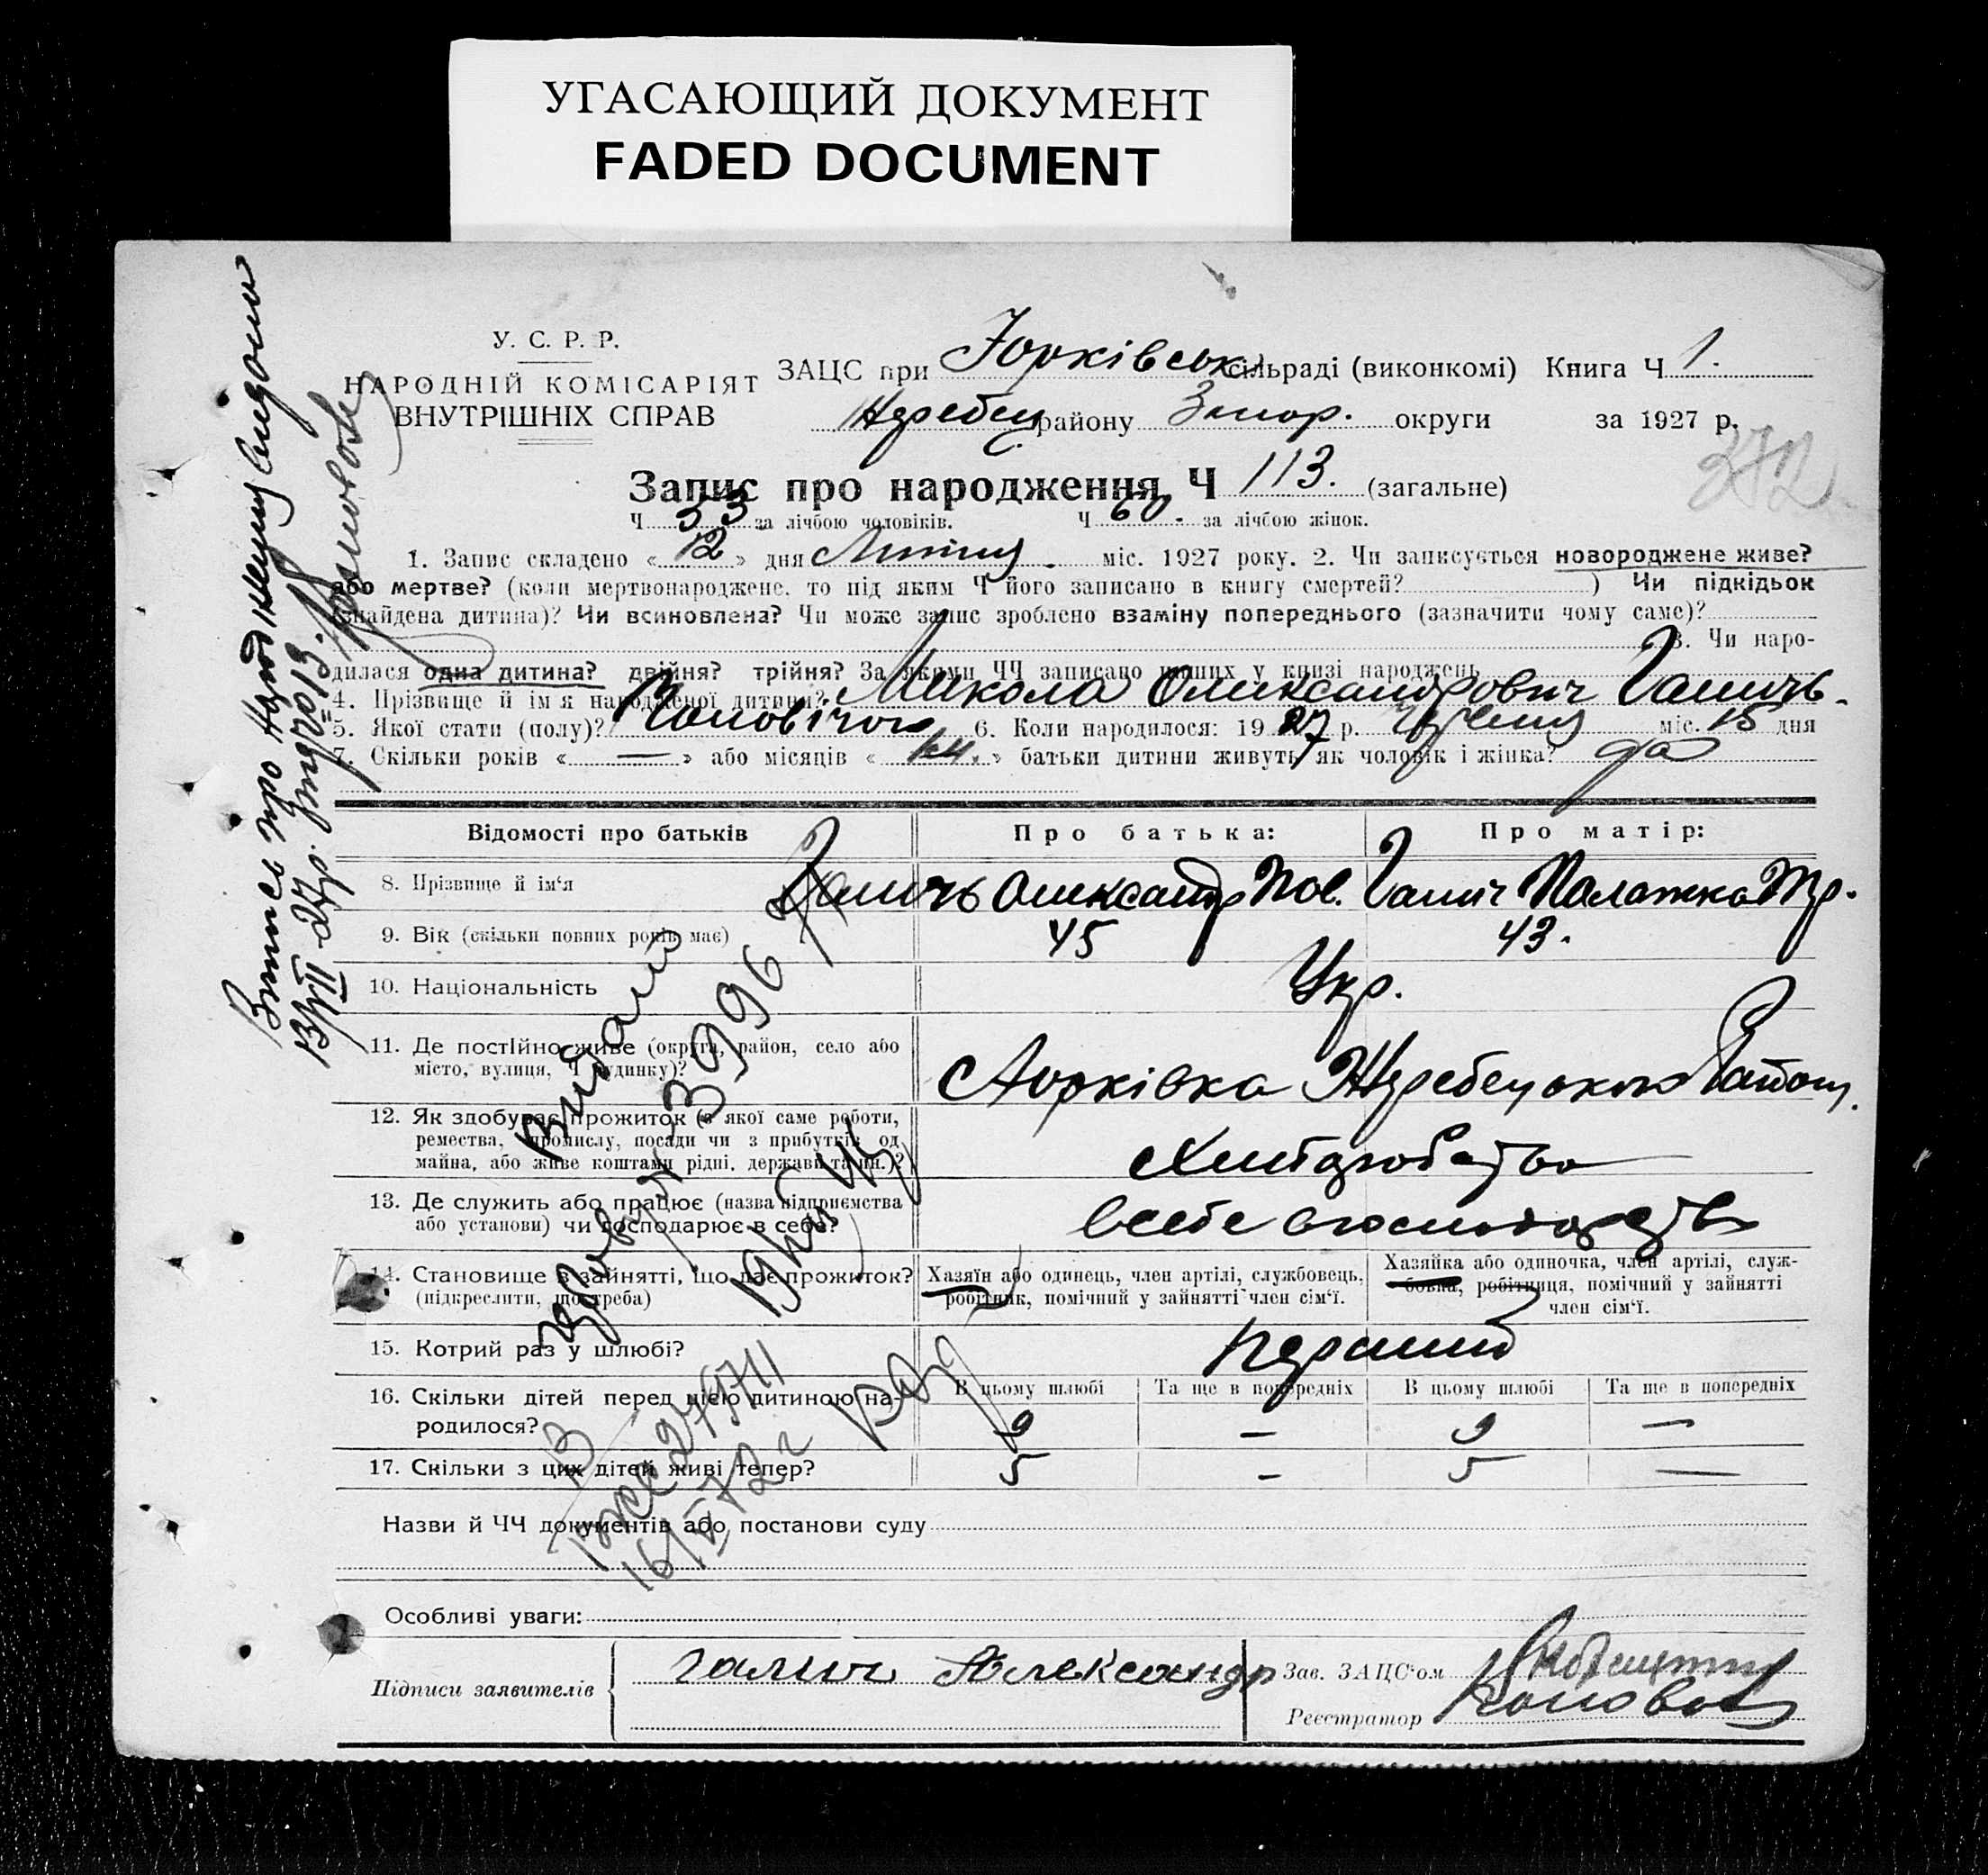 УГАСАЮЩИЙ ДОКУМЕНТ
FADED DOCUMENT
У. С. Р. Р.
НАРОДНІЙ КОМІСАРІЯТ
ВНУТРІШНІХ СПРАВ
ЗАЦС при Юрківськ сільраді (виконкомі) Книга Ч 1.
Жеребец району Запор. округи за 1927 р.
372
Запис про народження Ч 113. (загальне)
Ч 53 за лічбою чоловіків. Ч 60. за лічбою жінок.
1. Запис складено « 12 » дня Липня міс. 1927 року. 2. Чи записується новороджене живе?
або мертве? (коли мертвонароджене, то під яким Ч його записано в книгу смертей? ) Чи підкідьок
(знайдена дитина)? Чи всиновлена? Чи може запис зроблено взаміну попереднього (зазначити чому саме)?
3. Чи наро-
дилася одна дитина? двійня? трійня? За якими ЧЧ записано інших у книзі народжень
4. Прізвище й ім'я народженої дитини? Микола Олександрович Галичь.
5. Якої стати (полу)? Чоловічого 6. Коли народилося: 1927 р. Червня міс. 15 дня
7. Скільки років « — » або місяців « » батьки дитини живуть як чоловік і жінка? да
Відомості про батьків Про батька: Про матір:
8. Прізвище й ім'я Галичь Олександр Пов. Галич Палажка Гр.
9. Вік (скільки повних років має) 45 43.
10. Національність Укр.
11. Де постійно живе (округа, район, село або
місто, вулиця, Ч будинку)? Юрківка Жеребецького Району.
12. Як здобуває прожиток (з якої саме роботи,
ремества, промислу, посади чи з прибутків од
майна, або живе коштами рідні, держави та ин.)? Хліборобство
13. Де служить або працює (назва підприємства
або установи) чи господарює в себе? в себе в господарстві
14. Становище в зайнятті, що дає прожиток?
(підкреслити, що треба)
Хазяїн або одинець, член артілі, службовець,
робітник, помічний у зайнятті член сім'ї.
Хазяйка або одиночка, член артілі, служ-
бовка, робітниця, помічний у зайнятті
член сім'ї.
15. Котрий раз у шлюбі? перший
16. Скільки дітей перед цією дитиною на-
родилося?
В цьому шлюбі Та ще в попередніх В цьому шлюбі Та ще в попередніх
9 — 9 —
17. Скільки з цих дітей живі тепер? 5 — 5 —
Назви й ЧЧ документів або постанови суду
Особливі уваги:
Підписи заявителів Галич Александр
Зав. ЗАЦС'ом
Реєстратор Коновал
Випись про народження видано
13/VII-27р.
Видано
3996
16/V 72 г